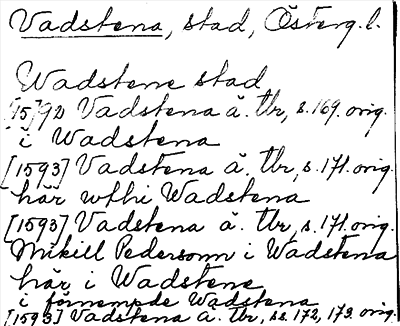 Vadstena, stad, Österg.l.
Wadstene stad
[15]92 Vadstena ä. Ur, s.169. orig.
i Wadstena
[1593] Vadstena ä. Ur, s.171. orig.
här wthi Wadstena
[1593] Vadstena ä. Ur, s.171. orig.
Mikill Pedersonn i Wadstena
här i Wadstene
i förnempde Wadstena
[1593] Vadstena ä. Ur, ss.172, 173. orig.